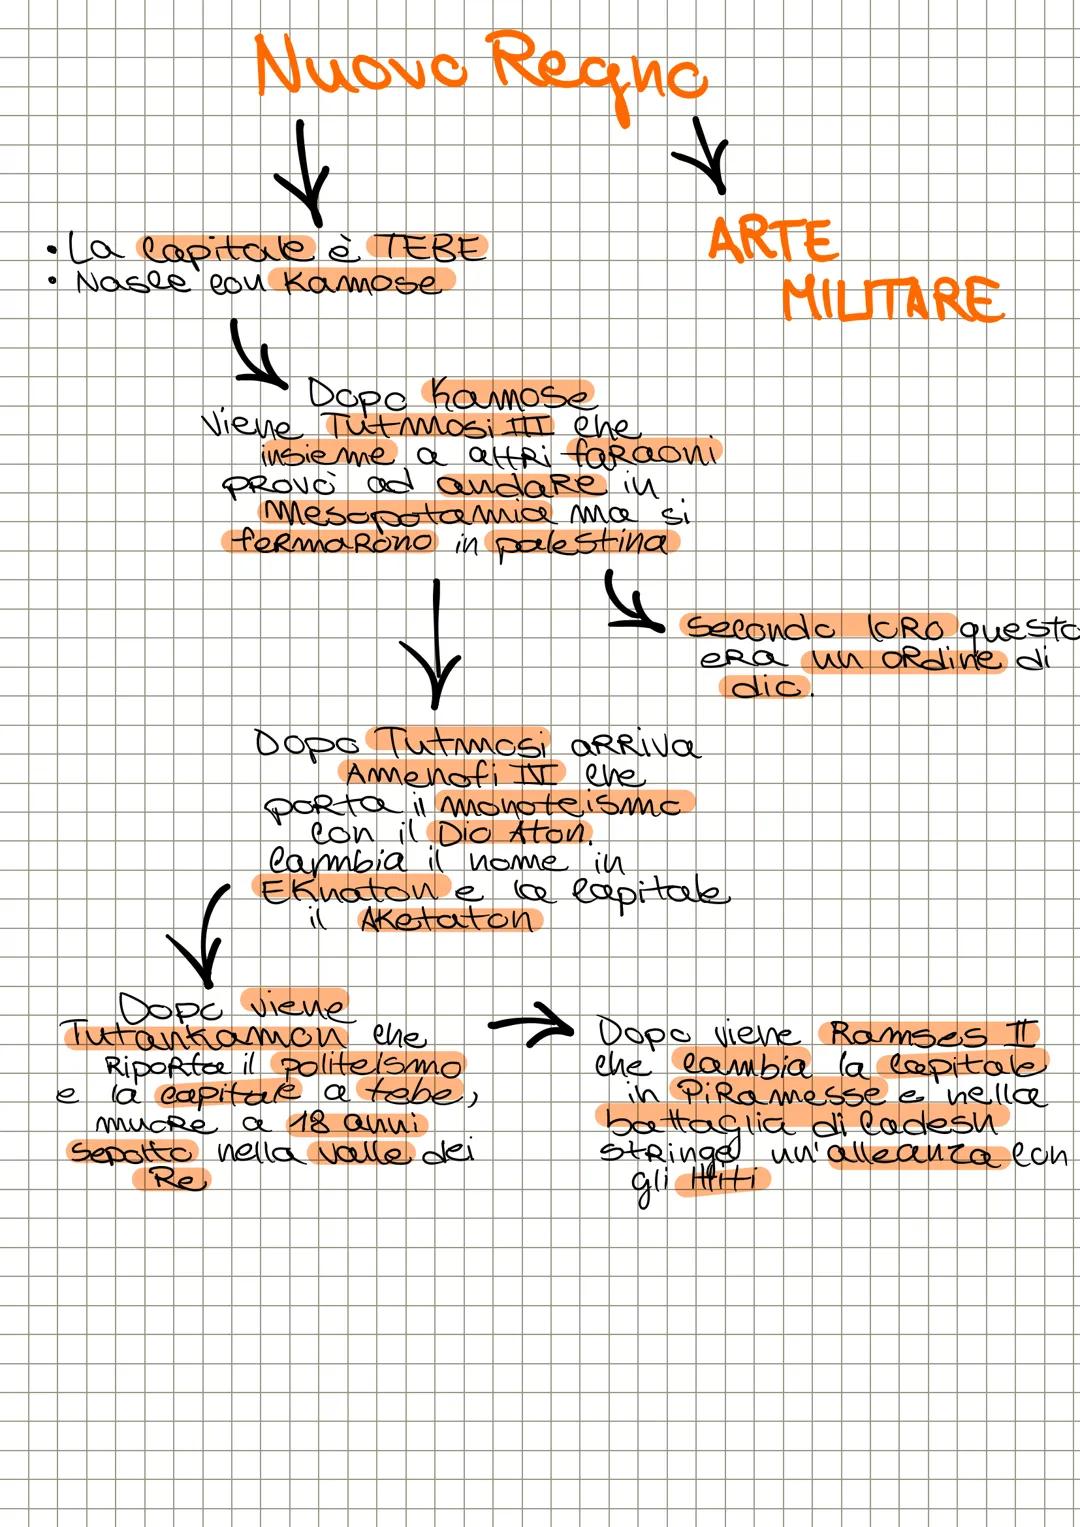 Nuovo Regno
ARTE
MILITARE
• La capitale è TEBE
• Nasce con Kamose
Dopo Kamose
viene Tutmosi III che
insieme a altri faraoni
provò ad andare in
Mesopotamia ma si
fermarono in palestina
Secondo loro questo
era un ordine di
dio.
Dopo Tutmosi arriva
Amenofi IV che
porta il monoteismo
con il Dio Aton.
Cambia il nome in
Eknaton e la capitale
il Aketaton
Dopo viene
Tutankamon che
riporta il politeismo
e la capitale a tebe,
muore a 18 anni
sepolto nella valle dei
Re
Dopo viene Ramses II
che cambia la capitale
in PiRamesse e nella
battaglia di Cadesh
stringe un'alleanza con
gli Ittiti